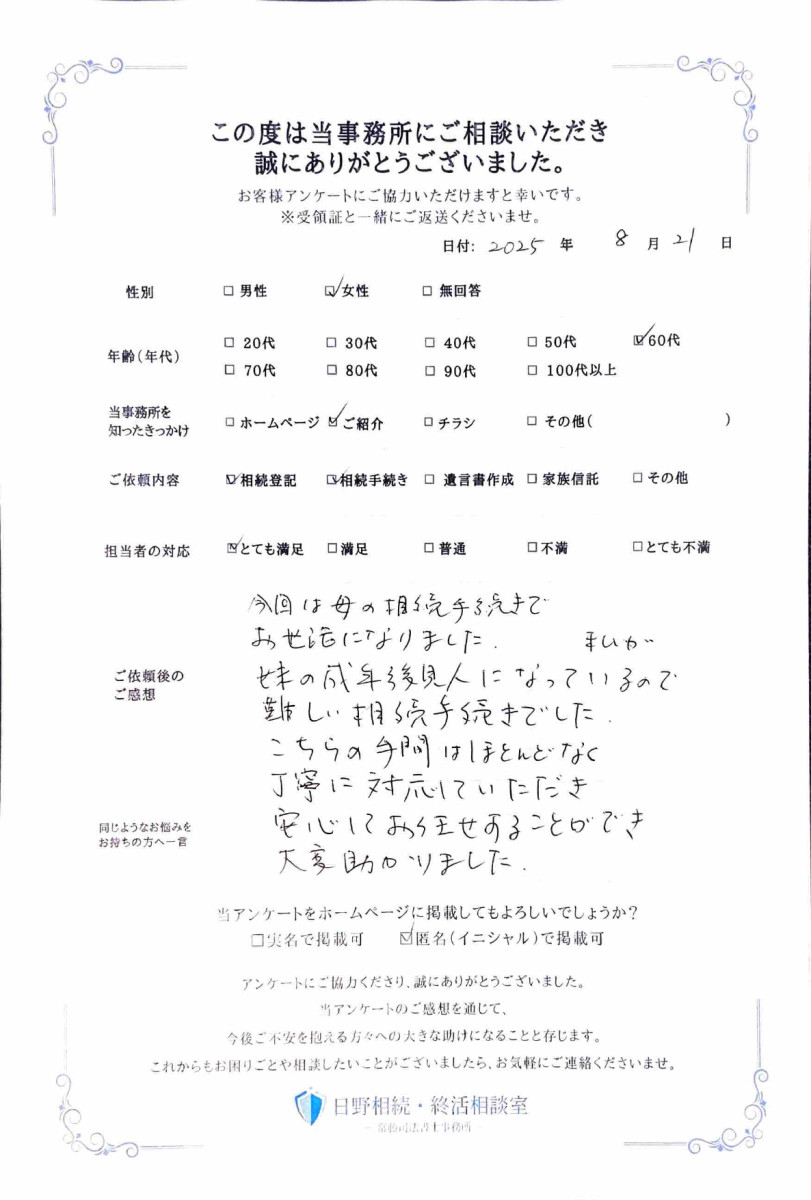 この度は当事務所にご相談いただき
誠にありがとうございました。
お客様アンケートにご協力いただけますと幸いです。
※受領証と一緒にご返送くださいませ。
日付: 2025 年 8 月 21 日
性別 □ 男性 ☑ 女性 □ 無回答
年齢(年代) □ 20代 □ 30代 □ 40代 □ 50代 ☑ 60代
□ 70代 □ 80代 □ 90代 □ 100代以上
当事務所を
知ったきっかけ □ ホームページ ☑ ご紹介 □ チラシ □ その他( )
ご依頼内容 ☑ 相続登記 ☑ 相続手続き □ 遺言書作成 □ 家族信託 □ その他
担当者の対応 ☑ とても満足 □ 満足 □ 普通 □ 不満 □ とても不満
ご依頼後の
ご感想
今回は母の相続手続きで
お世話になりました. 私が
妹の成年後見人になっているので
難しい相続手続きでした.
こちらの手間はほとんどなく
丁寧に対応していただき
安心してお任せすることができ
大変助かりました.
同じようなお悩みを
お持ちの方へ一言
当アンケートをホームページに掲載してもよろしいでしょうか?
□ 実名で掲載可 ☑ 匿名(イニシャル)で掲載可
アンケートにご協力くださり、誠にありがとうございました。
当アンケートのご感想を通じて、
今後ご不安を抱える方々への大きな助けになることと存じます。
これからもお困りごとや相談したいことがございましたら、お気軽にご連絡くださいませ。
日野相続・終活相談室
司法書士事務所